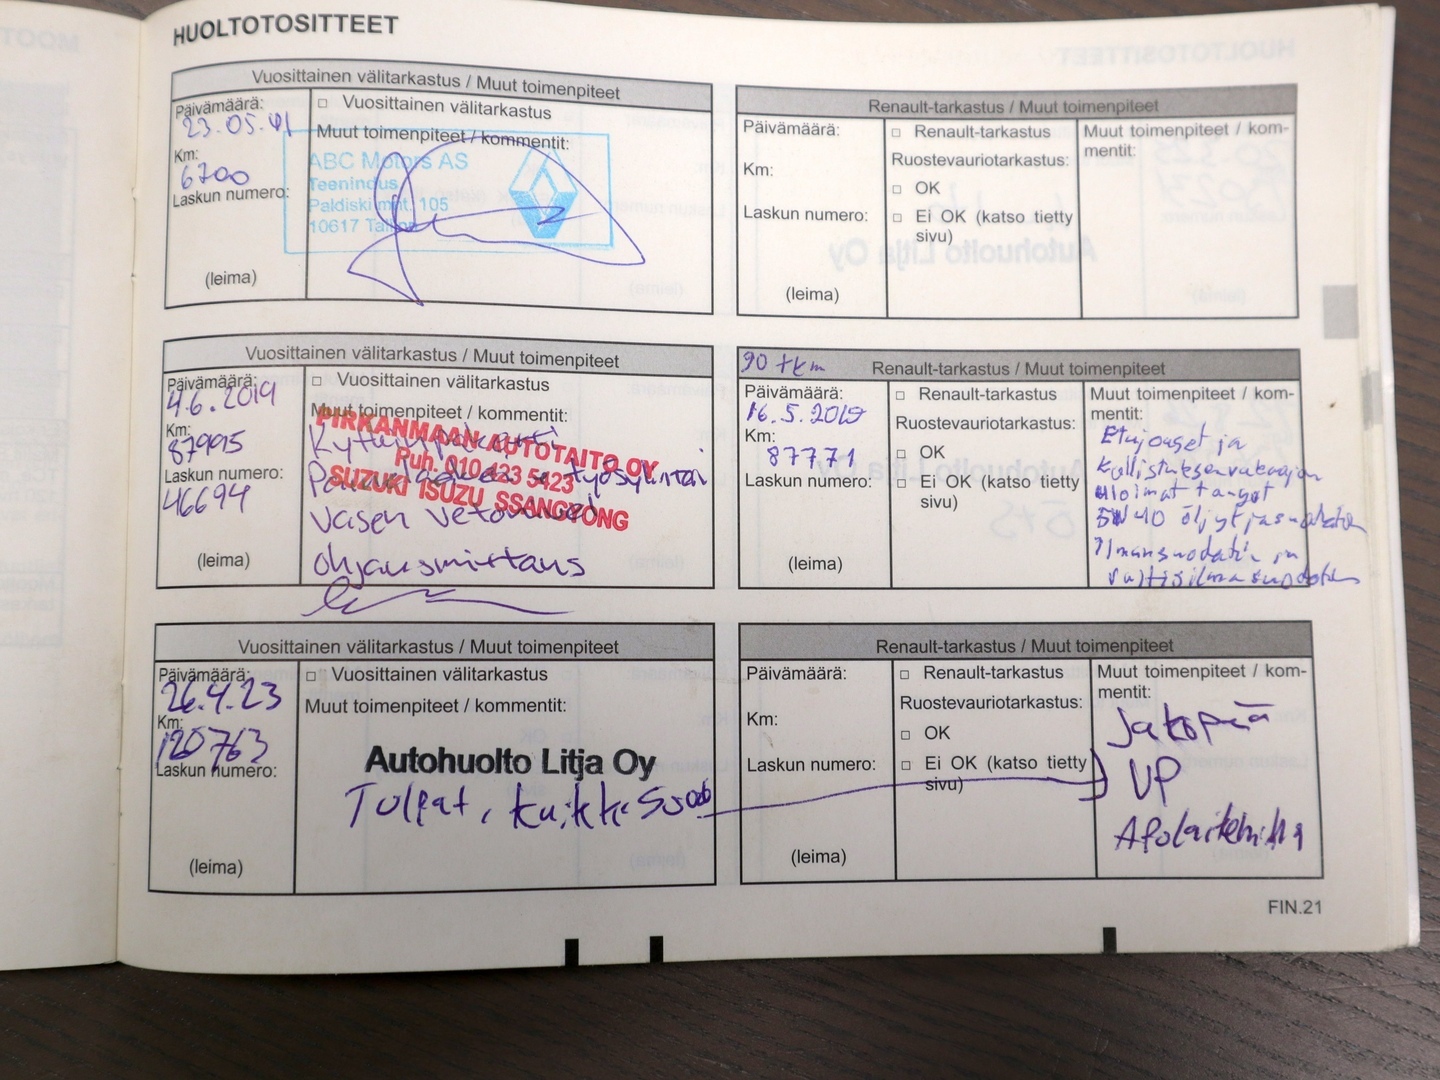 HUOLTOTOSITTEET
Vuosittainen välitarkastus / Muut toimenpiteet
Päivämäärä:
23.05.
Km:
6700
Laskun numero:
(leima)
□ Vuosittainen välitarkastus
Muut toimenpiteet / kommentit:
ABC Motors AS
Teenindus
Paldiski mnt. 105
10617 Tallinn
Renault-tarkastus / Muut toimenpiteet
Päivämäärä:
Km:
Laskun numero:
(leima)
□ Renault-tarkastus
Ruostevauriotarkastus:
□ OK
□ Ei OK (katso tietty
sivu)
Muut toimenpiteet / kom-
mentit:
Vuosittainen välitarkastus / Muut toimenpiteet
Päivämäärä:
4.6.2019
Km:
87995
Laskun numero:
46694
(leima)
□ Vuosittainen välitarkastus
Muut toimenpiteet / kommentit:
PIRKANMAAN AUTOTAITO OY
Puh. 010 423 5423
SUZUKI ISUZU SSANGYONG
työsylinteri
Vasen vetonivel
ohjausmittaus
90 tkm
Renault-tarkastus / Muut toimenpiteet
Päivämäärä:
16.5.2019
Km:
87771
Laskun numero:
(leima)
□ Renault-tarkastus
Ruostevauriotarkastus:
□ OK
□ Ei OK (katso tietty
sivu)
Muut toimenpiteet / kom-
mentit:
Etujouset ja
kallistuksenvakaajan
uloimat tangot
5W40 öljyt ja suodatin
ilmansuodatin ja
raitisilmasuodatin
Vuosittainen välitarkastus / Muut toimenpiteet
Päivämäärä:
26.4.23
Km:
120763
Laskun numero:
(leima)
□ Vuosittainen välitarkastus
Muut toimenpiteet / kommentit:
Autohuolto Litja Oy
Tulpat, kaikki suod
Renault-tarkastus / Muut toimenpiteet
Päivämäärä:
Km:
Laskun numero:
(leima)
□ Renault-tarkastus
Ruostevauriotarkastus:
□ OK
□ Ei OK (katso tietty
sivu)
Muut toimenpiteet / kom-
mentit:
Jakopää
VP
Apulaitehihna
FIN.21